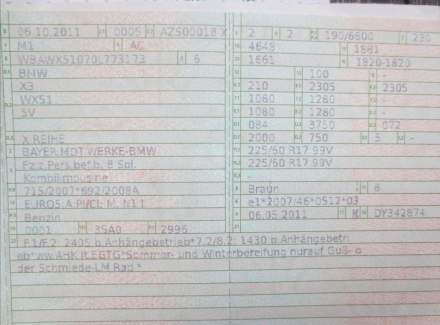 06.10.2011 0005 AZS00018 X
M1 AC
WBAWX51070L773173 6
BMW
X3
WX51
5V
X REIHE
BAYER.MOT.WERKE-BMW
Fz.z.Pers.bef.b. 8 Spl.
Kombilimousine
715/2007*692/2008A
EURO5;A;PI/CI; M, N1 I
Benzin
0001 35A0 2996
2 2 190/6600 230
4648 1881
1661 1820-1820
- 100 -
210 2305 2305
1060 1280 -
1080 1280 -
084 3750 072
2000 750 5 -
225/60 R17 99V
225/60 R17 99V
-
Braun 8
e1*2007/46*0512*03
06.05.2011 K DY342874
F.1/F.2: 2405 b.Anhängebetrieb*7.2/8.2: 1430 b.Anhängebetri
eb*ww.AHK lt.EBTG*Sommer- und Winterbereifung nur auf Guß- o
der Schmiede-LM Rad.*